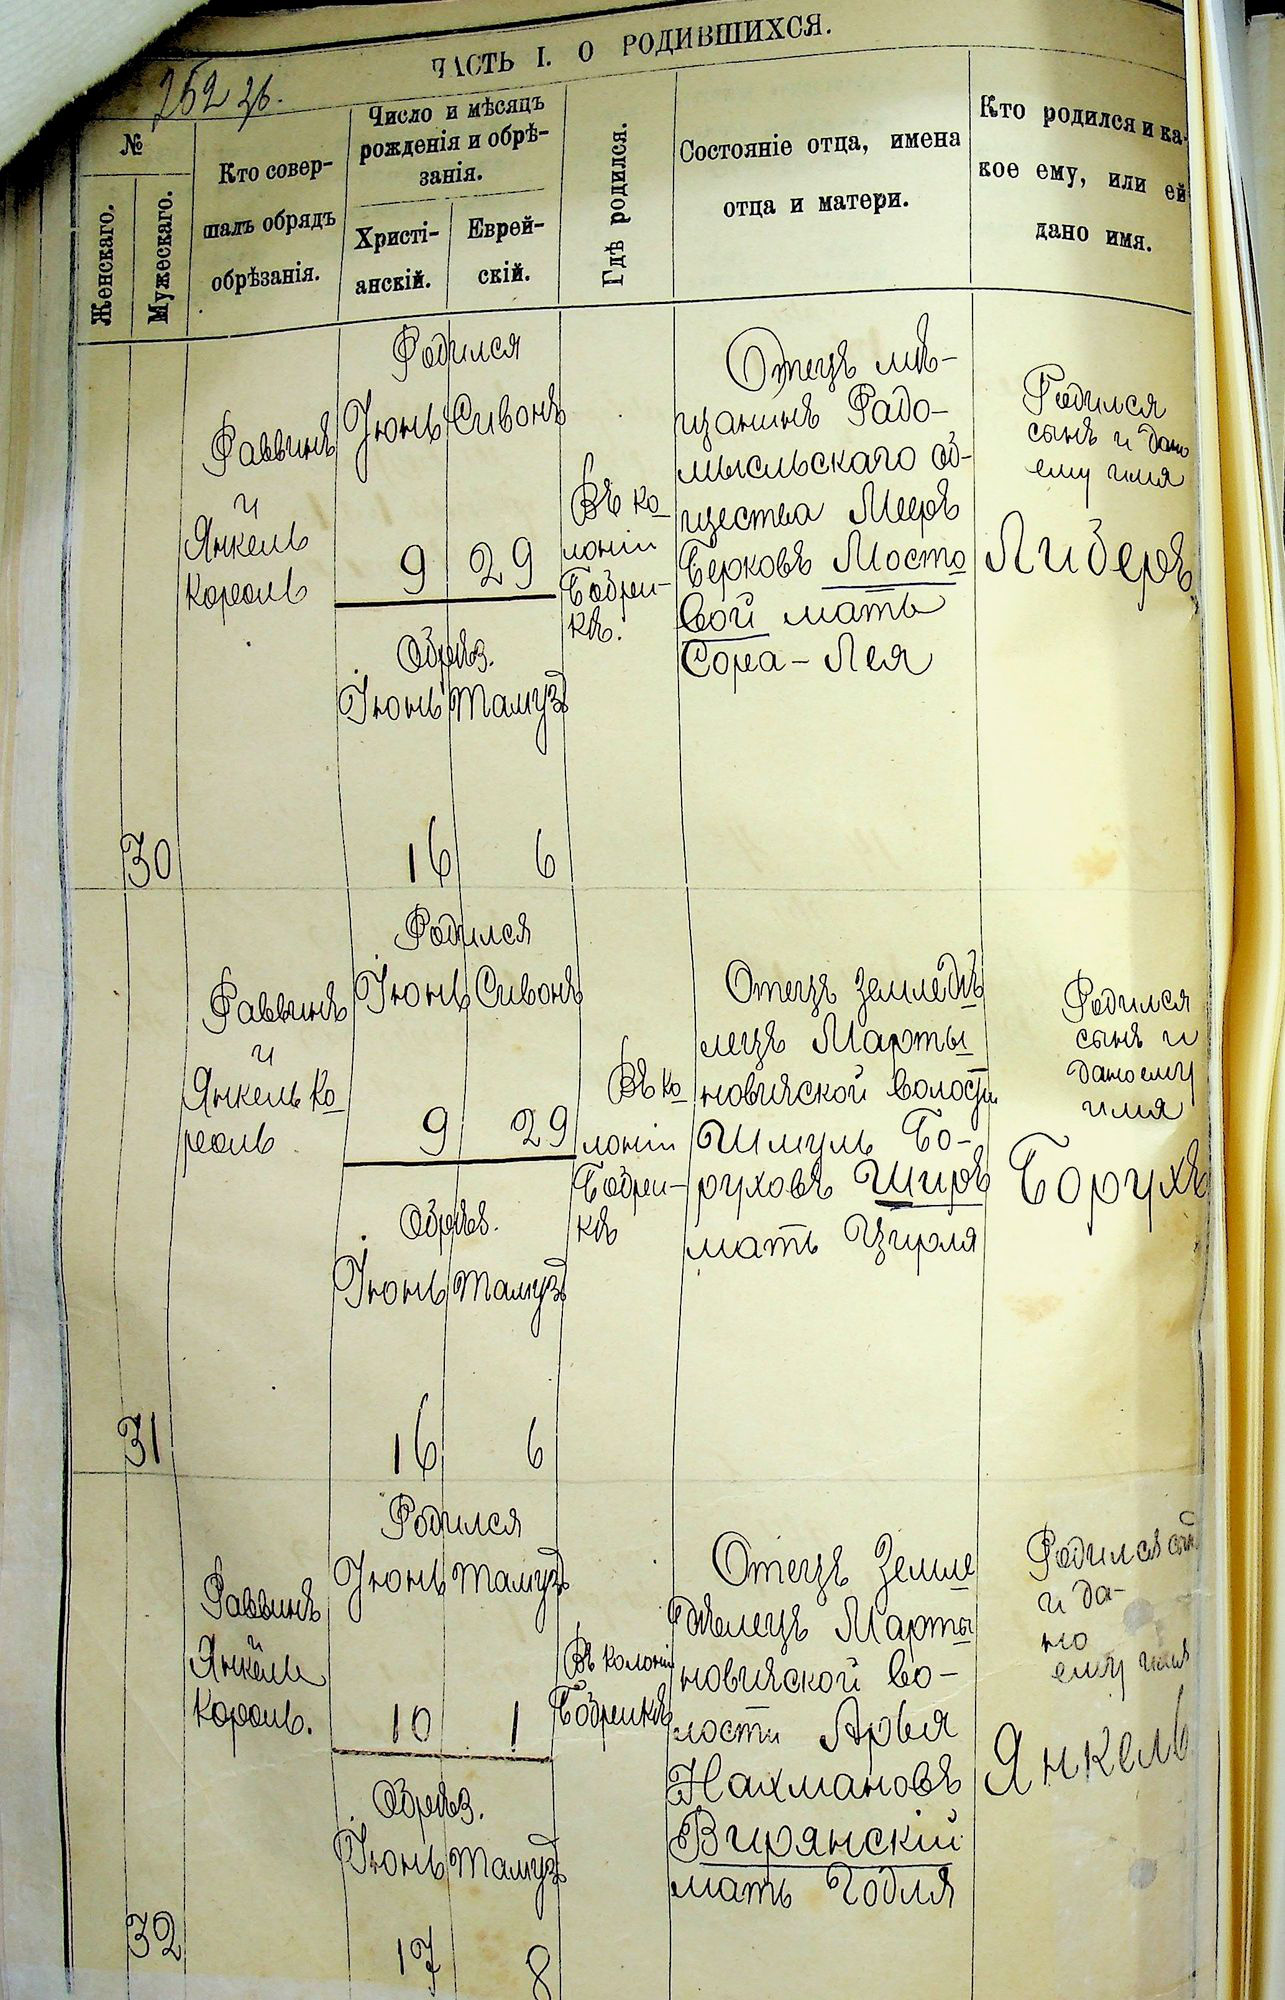 ЧАСТЬ I. О РОДИВШИХСЯ.
252 зв.
№
Женскаго.
Мужескаго.
Кто совер-
шалъ обрядъ
обрѣзанія.
Число и мѣсяцъ
рожденія и обрѣ-
занія.
Христі-
анскій.
Еврей-
скій.
Гдѣ родился.
Состояніе отца, имена
отца и матери.
Кто родился и ка-
кое ему, или ей
дано имя.
30
Раввинъ
и
Янкель
Король
Родился
Іюнь Сивонъ
9 29
Обрѣз.
Іюнь Тамузъ
16 6
Въ ко
лоніи
Бобрин-
кѣ.
Отецъ мѣ-
щанинъ Радо-
мысльскаго об-
щества Мееръ
Берковъ Мосто
вой мать
Сора-Лея
Родился
сынъ и дано
ему имя
Либеръ
31
Раввинъ
и
Янкель Ко
роль
Родился
Іюнь Сивонъ
9 29
Обрѣз.
Іюнь Тамузъ
16 6
Въ ко
лоніи
Бобрин-
кѣ
Отецъ земледѣ
лецъ Марты
новичской волости
Шмуль Бо-
руховъ Ширъ
мать Цирля
Родился
сынъ и
дано ему
имя
Борухъ
32
Раввинъ
и
Янкель
Король.
Родился
Іюнь Тамузъ
10 1
Обрѣз.
Іюнь Тамузъ
17 8
Въ колоніи
Бобринкѣ
Отецъ Земле
дѣлецъ Марты
новичской во-
лости Арья
Нахмановъ
Вирянскій
мать Годля
Родился сынъ
и да-
но
ему имя
Янкель